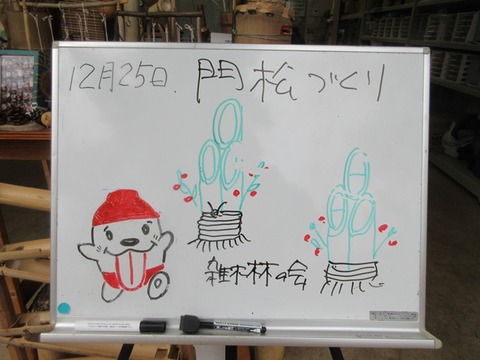 12月25日. 門松づくり
雑木林の会